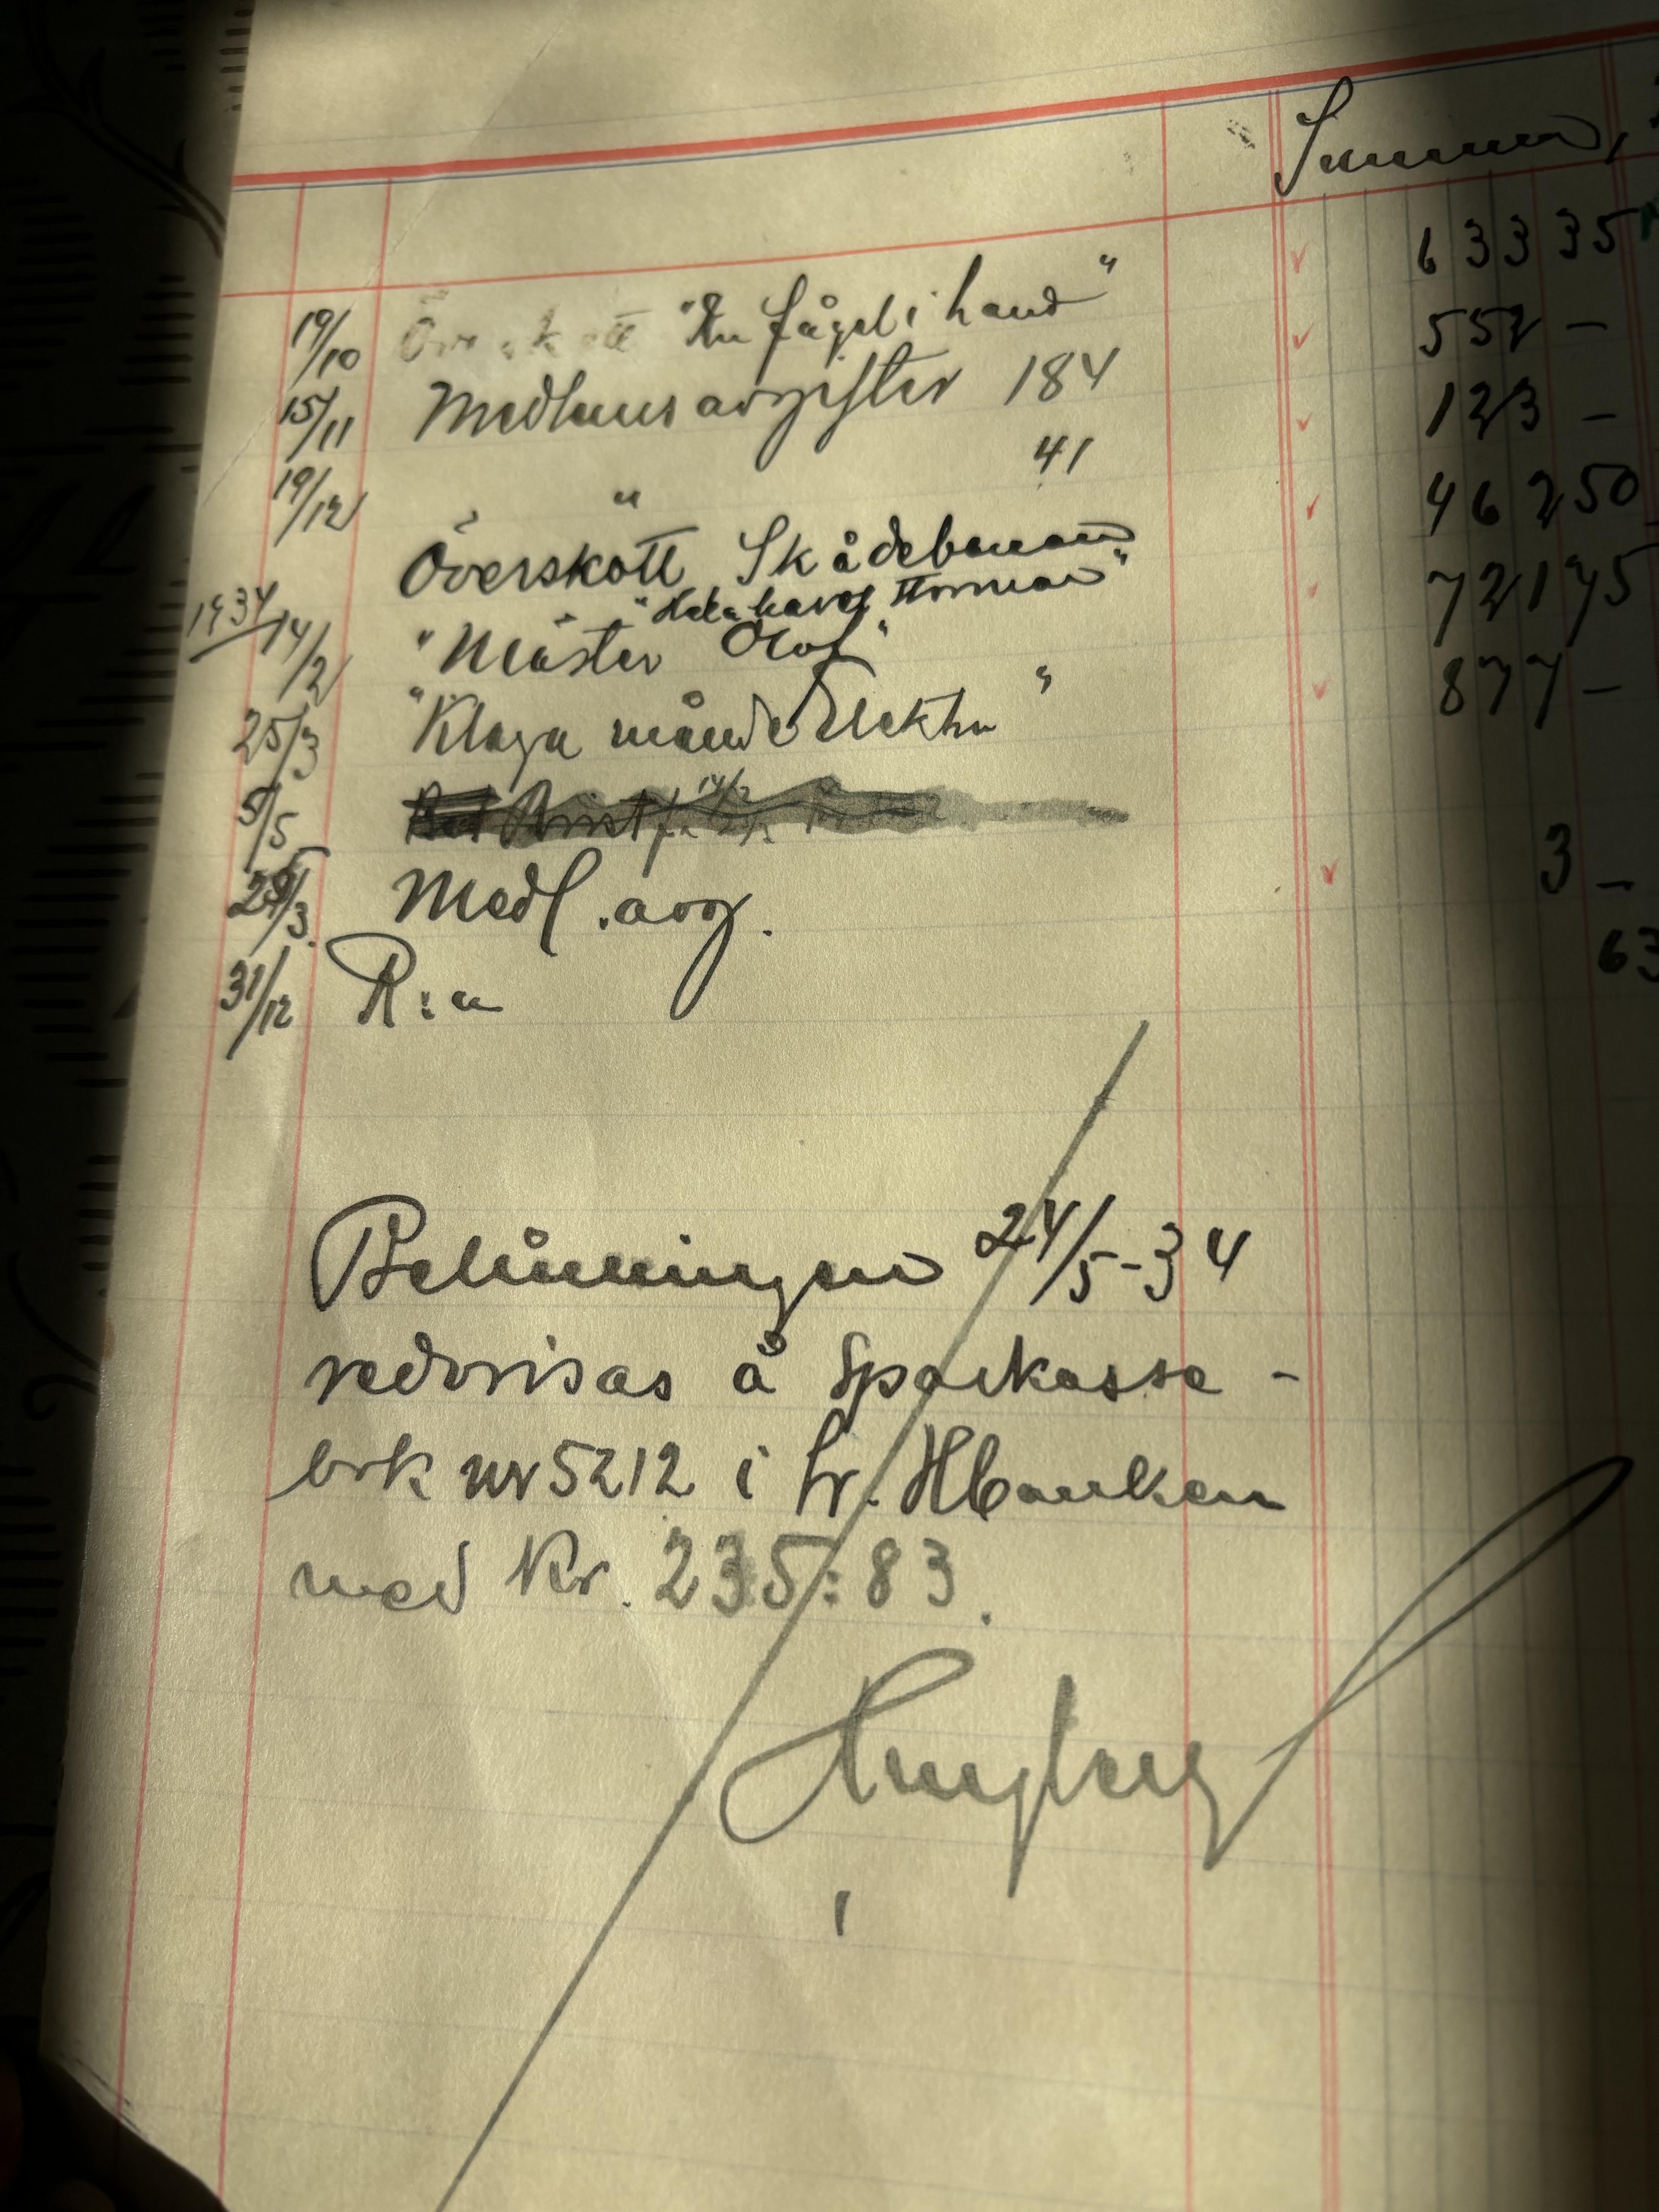 Summa,
19/10 Överskott "En fågel i hand" 633 35
15/11 Medlemsavgifter 184 552 -
19/12 " 41 123 -
Överskott Skådebanan 462 50
"Hela havet stormar"
1934 14/2 "Mäster Olof" 721 75
25/3 "Klaga månde Elektra" 877 -
5/5
25/3. Medl. avg. 3 -
31/12 R:a 63
24/5-34
redovisas å Sparkasse-
bok nr 5212 i Sv. Hbanken
med Kr. 235:83.